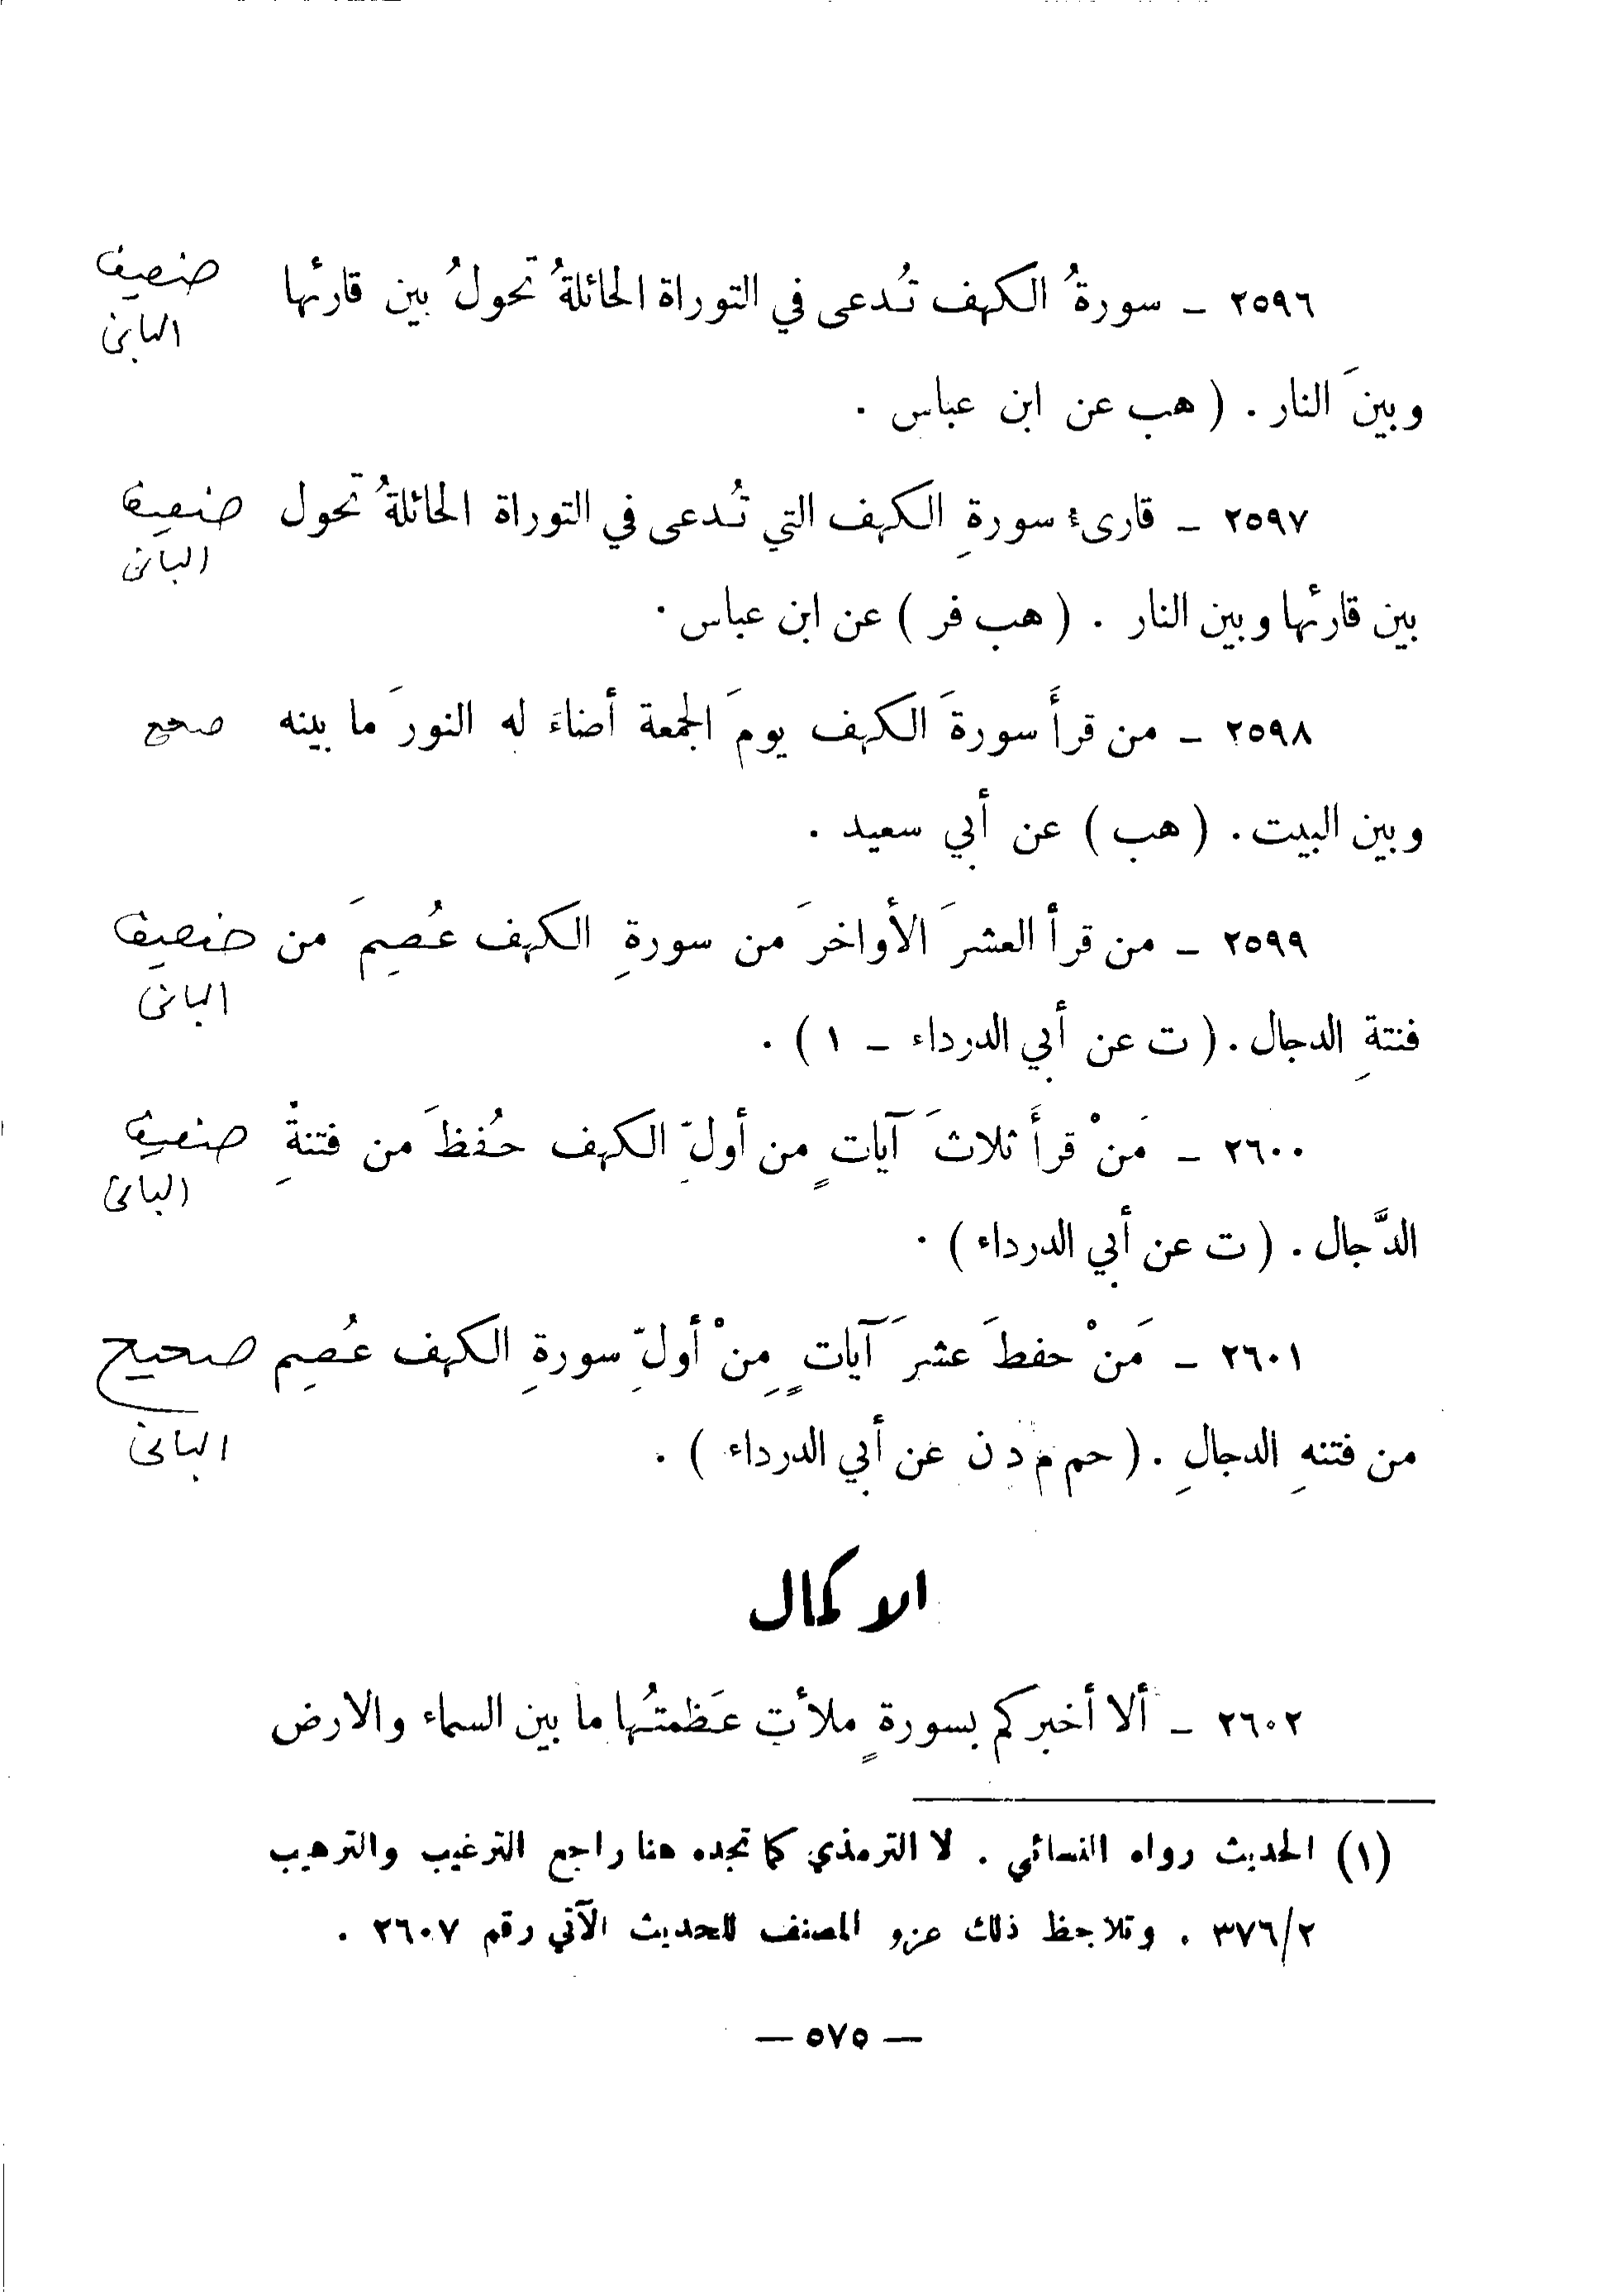 ٢٥٩٦ ـ سورةُ الكهف تُدعى في التوراة الحائلةُ تحولُ بين قارئها ضعيف
البانى
وبينَ النار . ( هب عن ابن عباس .
٢٥٩٧ ـ قارىء سورةِ الكهف التي تُدعى في التوراة الحائلةُ تحول ضعيف
البانى
بين قارئها وبين النار . ( هب فر ) عن ابن عباس .
٢٥٩٨ ـ من قرأَ سورةَ الكهف يومَ الجمعة أضاءَ له النورَ ما بينه صحح
وبين البيت . ( هب ) عن أبي سعيد .
٢٥٩٩ ـ من قرأ العشرَ الأواخرَ من سورةِ الكهف عُصِمَ من ضعيف
البانى
فنتةِ الدجال . ( ت عن أبي الدرداء ـ ١ ) .
٢٦٠٠ ـ مَنْ قرأَ ثلاثَ آياتٍ من أولِّ الكهف حُفظَ من فتنةِ ضعيف
البانى
الدَّجال . ( ت عن أبي الدرداء ) .
٢٦٠١ ـ مَنْ حفظَ عشرَ آياتٍ مِنْ أولِّ سورةِ الكهف عُصِم صحيح
البانى
من فتنهِ الدجالِ . ( حم م د ن عن أبي الدرداء ) .
الاكمال
٢٦٠٢ ـ ألا أخبركم بسورةٍ ملأت عَظمتُها ما بين السماء والارض
(١) الحديث رواه النسائي . لا الترمذي كما تجده هنا راجع الترغيب والترهيب
٣٧٦/٢ . وتلاحظ ذلك عزو المصنف للحديث الآتي رقم ٢٦٠٧ .
— ٥٧٥ —